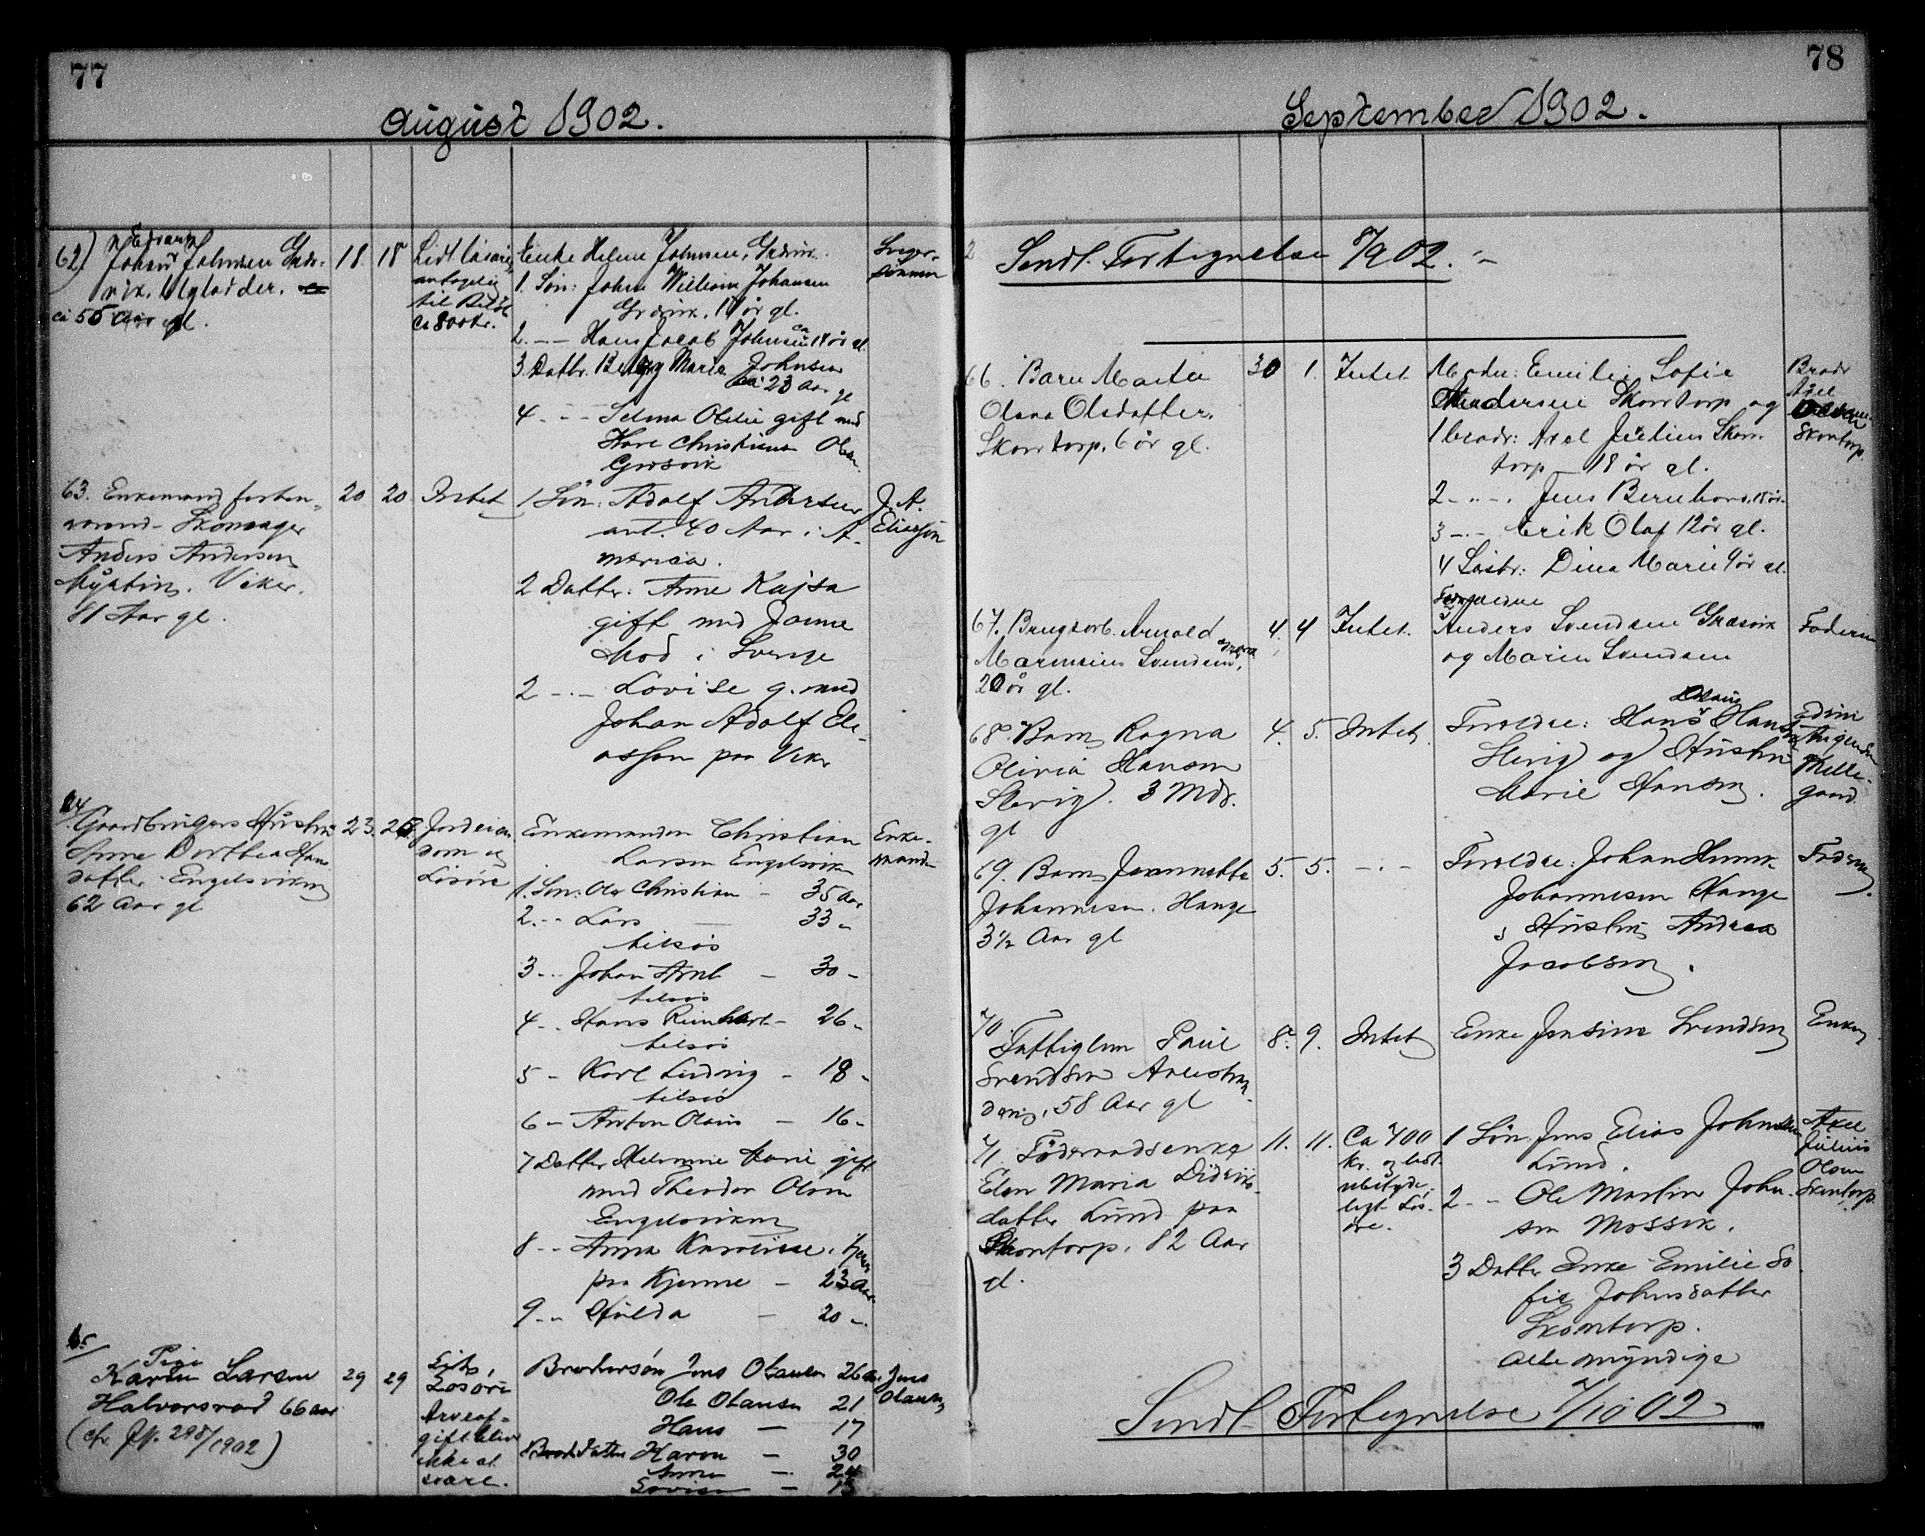 77
August 1902.
62) Edvard
Johan Johnsen Græs-
vik. Ugladder.
ca 55 Aar gl.
18. 18
Lidt Løsøre
antagelig
til Beløb
ca 800 kr.
Enke Helene Johnsen, Græsvik.
1. Søn: John William Johansen
Græsvik, 19 år gl.
2. — Hans Jacob Johnsen ca 14 år gl.
3. Datter. Betzy Marie Johnsen
ca 23 Aar gl
4. — Selma Otelie gift med
Karl Christian Olsen
Græsvik
Sviger-
sønnen
63. Enkemand forhen-
værende Skomager
Anders Andersen
Myrtin. Viker.
81 Aar gl.
20 20 Intet
1 Søn: Adolf Andersen
ant. 40 Aar i A-
merica.
2 Datter: Anne Kajsa
gift med Janne
Mod i Sverige
2 — Lovise g. med
Johan Adolf Eli-
asson paa Viker
J. A.
Eliasson
64
Gaardbrugers Hustru
Anne Dorthea Hans
datter Engelsviken
62 Aar gl
23. 25.
Jordeien-
dom og
Løsøre
Enkemanden Christian
Larsen Engelsviken
1. Søn: Ole Christian — 35 Aar
2. — Lars — 33 -
tilsøs
3 — Johan Arnt — 30 -
tilsøs
4 — Hans Reinhart — 26 -
tilsøs
5 — Karl Ludvig — 18 -
tilsøs
6 — Anton Olaus — 16 -
7 Datter Helmine Marie gift
med Theodor Olsen
Engelsviken
8 — Anna Karoline,
paa Kjenne — 23 Aar
9 — Hulda — 20 -
Enke-
manden
65
Pige
Karen Larsen
Halvorsrød 66 aar
(cfr Jp. 298/1902)
29 29
Lidt
Løsøre
Arveaf-
gift blive
ikke at
svare.
Brodersøn Jens Olausen 26 a.
Ole Olausen 21
Hans — 17
Broderdatter Karen — 30
Anna — 24
Lovise — 15
Jens
Olausen
78
September 1902.
Sendt Fortegnelse 8/9 02.
66. Barn Marta
Olava Olsdatter.
Skontorp. 6 år gl.
30 1. Intet.
Moder: Emilie Sofie
Andersen Skontorp og
1 broder: Axel Julius Skon-
torp — 18 år gl.
2 — Jens Bernhard 15 år
3 — Erik Olaf 12 år gl.
4 Søster: Dina Marie 9 år gl.
Broder
Axel
Skontorp
67. Brugsarb. Arnold
Marensius Svendsen,
20 år gl.
4. 4 Intet.
Forældrene
Anders Svendsen Græsvik
og Maren Svendsen
Faderen
68. Barn Ragna
Olivia Hansen
Slevig. 3 Mdr.
gl
4. 5. Intet.
Forældre: Hans Hansen
Slevig og Hustru
Marie Hansen.
69. Barn Jeannette
Johannesen. Hauge
3½ Aar gl
5. 5. — . —
Forældre: Johan Henrik
Johannesen Hauge
& Hustru Andrea
Jacobsen.
Faderen.
70.
Fattiglem Paul
Svendsen
58 Aar gl
8. 9. Intet
Enke Jensine Svendsen
Enken
71. Føderaadsenke
Elen Maria Didriks-
datter Lund paa
Skontorp, 82 Aar
gl.
11. 11.
Ca 400
kr. og lidt
ubetyde-
ligt Løs-
øre.
1 Søn Jens Elias Johnsen
Lund.
2 — Ole Martin John-
sen Mossik.
3 Datter Enke Emilie So-
fie Johnsdatter
Skontorp.
alle myndige
Axel
Julius
Olsen
Skontorp.
Sendt Fortegnelse 1/10 02